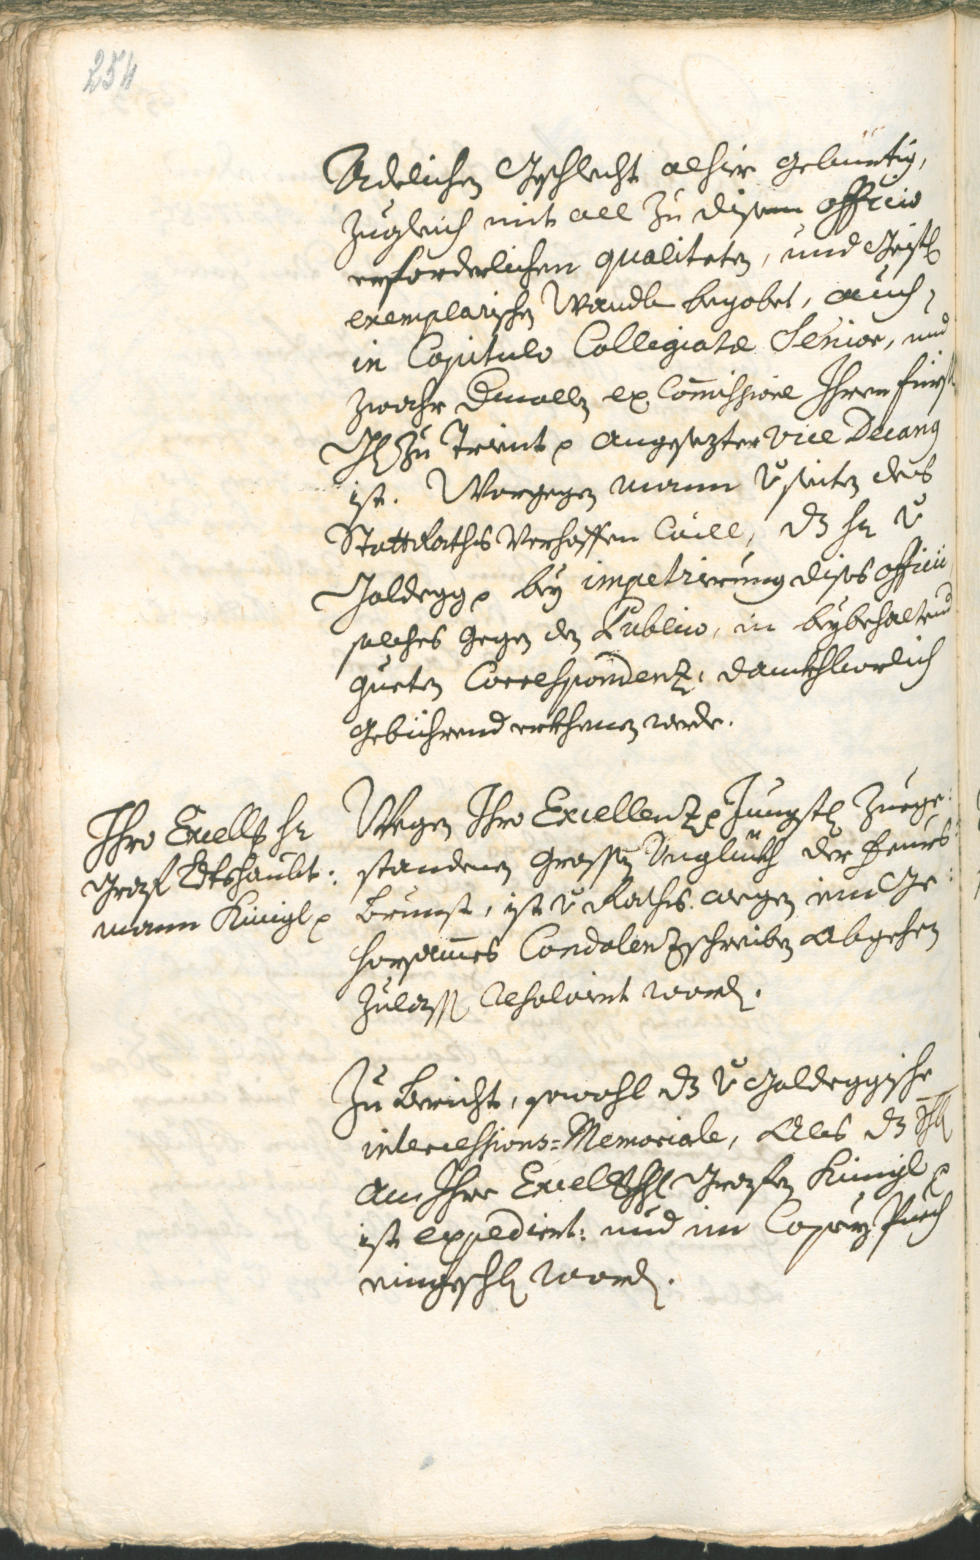 254
Adelichen Geschlecht alhier gebürtig,
zugleich mit all zu disem officio
erforderlichen qualiteten, und Geistl
exemplarischen Wandl begabet, auch
in Capitulo Collegiatæ Senior, und
zwahr dermallen ex Commissione Ihrer fürst
Gl zu Trient p angesezter Vice Decang
ist. Wargegen mann v seiten des
StattRaths Verhoffen will, dz hr v
Goldegg p bey impetrierung dises officii
solches gegen den Publico, in beybehaltend
gueten Correspondenz, danckhbarlich
gebührend erkhennen werde.
Ihro Excellz hr
Graf Ldtshaubt:
mann Künigl p
Wegen Ihro Excellenz p Jüngstl zuege:
standenen grossen Unglückh der feürs:
brunst, ist v Raths wegen ein Ge:
horsames Condolenzschreiben abgehen
zulassen resolviert worden.
Zu bericht, sowohl dz v Goldeggische
intercessions=Memoriale, als dz
an Ihre Excell Grafen Künigl p
ist expediert: und im Copey Puech
eingeschl worden.